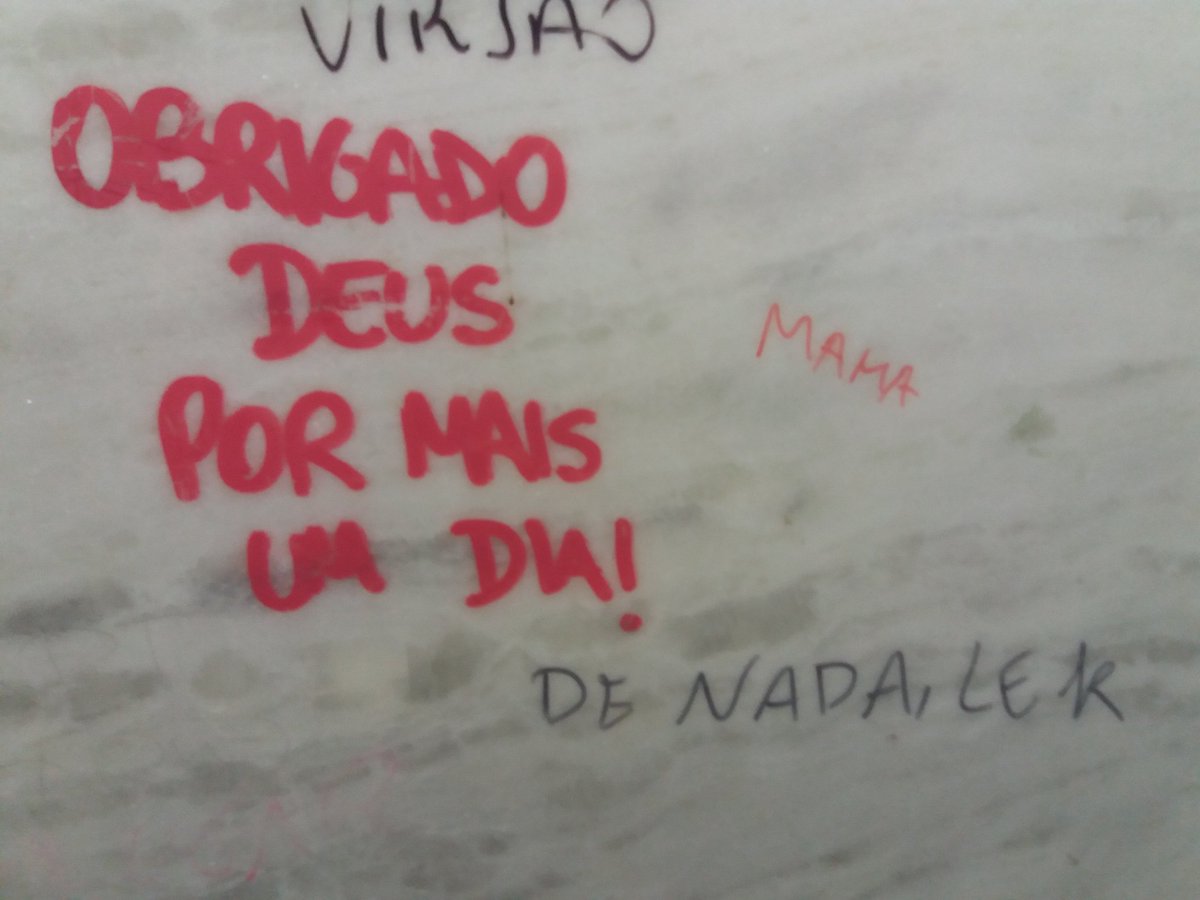 OBRIGADO
DEUS
POR MAIS
UM DIA!
MAMA
DE NADA, LEK